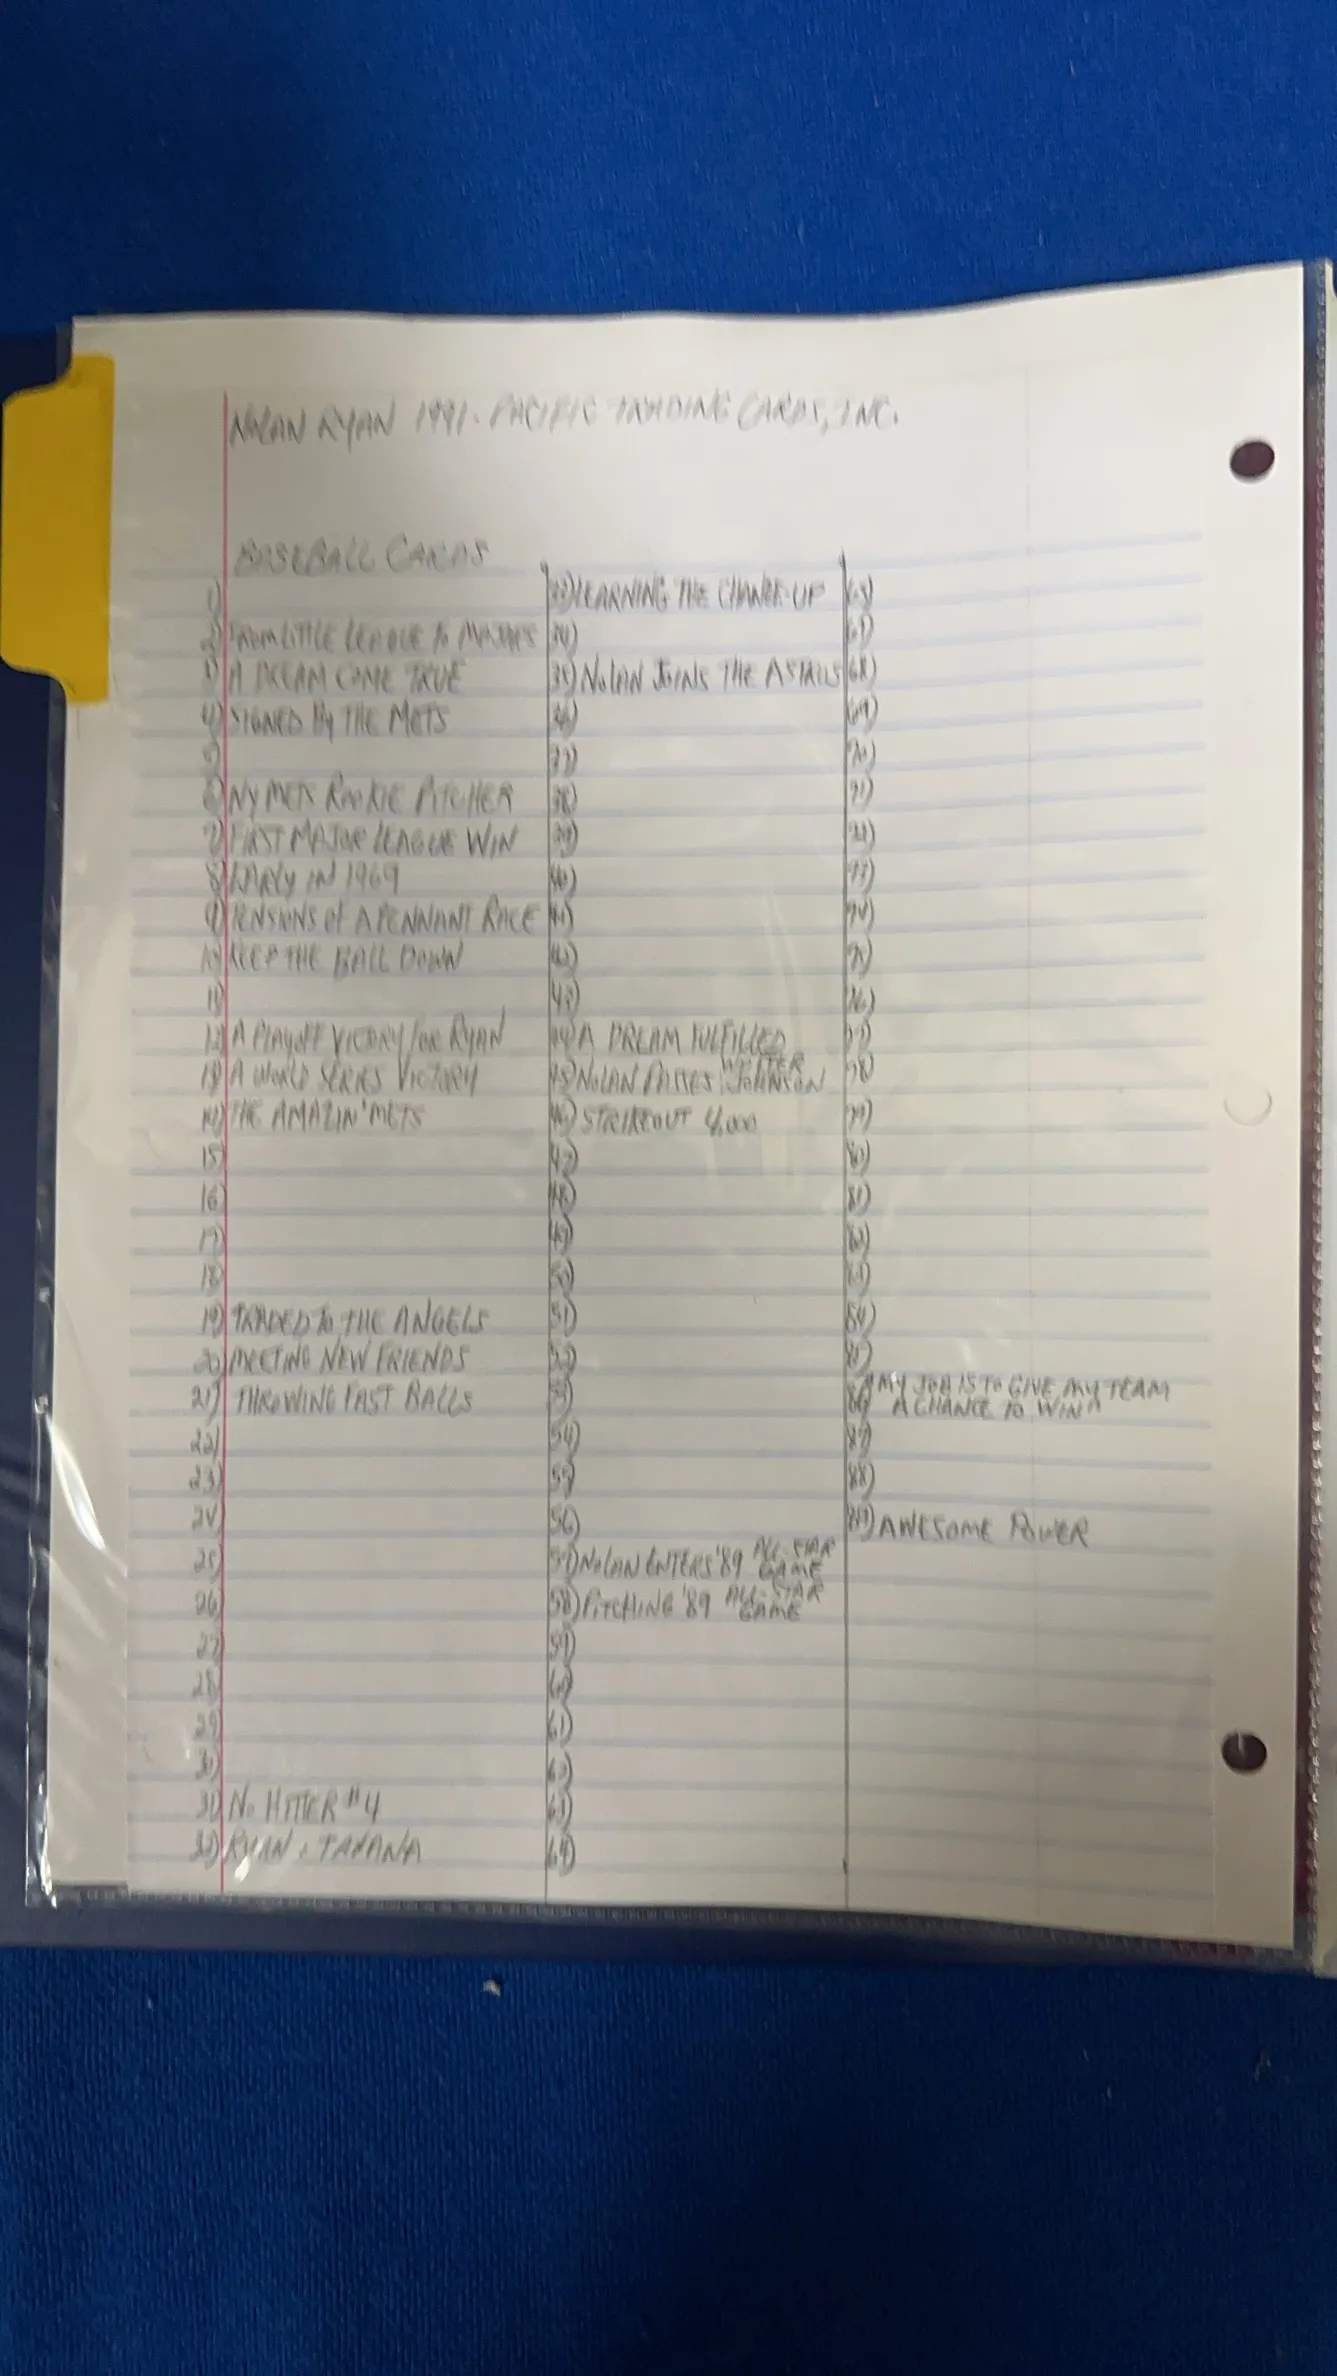 NOLAN RYAN 1991. PACIFIC TRADING CARDS, INC.
BASEBALL CARDS
1)
2) FROM LITTLE LEAGUE TO MAJORS
3) A DREAM COME TRUE
4) SIGNED By THE METS
5)
6) NY METS ROOKIE PITCHER
7) FIRST MAJOR LEAGUE WIN
8) EARLY IN 1969
9) TENSIONS of A PENNANT RACE
10) KEEP THE BALL DOWN
11)
12) A PLAYOFF VICTORY FOR RYAN
13) A WORLD SERIES VICTORY
14) THE AMAZIN' METS
15)
16)
17)
18)
19) TRADED TO THE ANGELS
20) MEETING NEW FRIENDS
21) THROWING FAST BALLS
22)
23)
24)
25)
26)
27)
28)
29)
30)
31) NO HITTER #4
32) RYAN & TANANA
33) LEARNING THE CHANGE-UP
34)
35) NOLAN JOINS THE ASTROS
36)
37)
38)
39)
40)
41)
42)
43)
44) A DREAM FULFILLED
45) NOLAN PASSES WALTER JOHNSON
46) STRIKEOUT 4,000
47)
48)
49)
50)
51)
52)
53)
54)
55)
56)
57) NOLAN ENTERS '89 ALL-STAR GAME
58) PITCHING '89 ALL-STAR GAME
59)
60)
61)
62)
63)
64)
65)
67)
68)
69)
70)
71)
72)
73)
74)
75)
76)
77)
78)
79)
80)
81)
82)
83)
84)
85)
86) "MY JOB IS TO GIVE MY TEAM
A CHANCE TO WIN"
87)
88)
89) AWESOME POWER